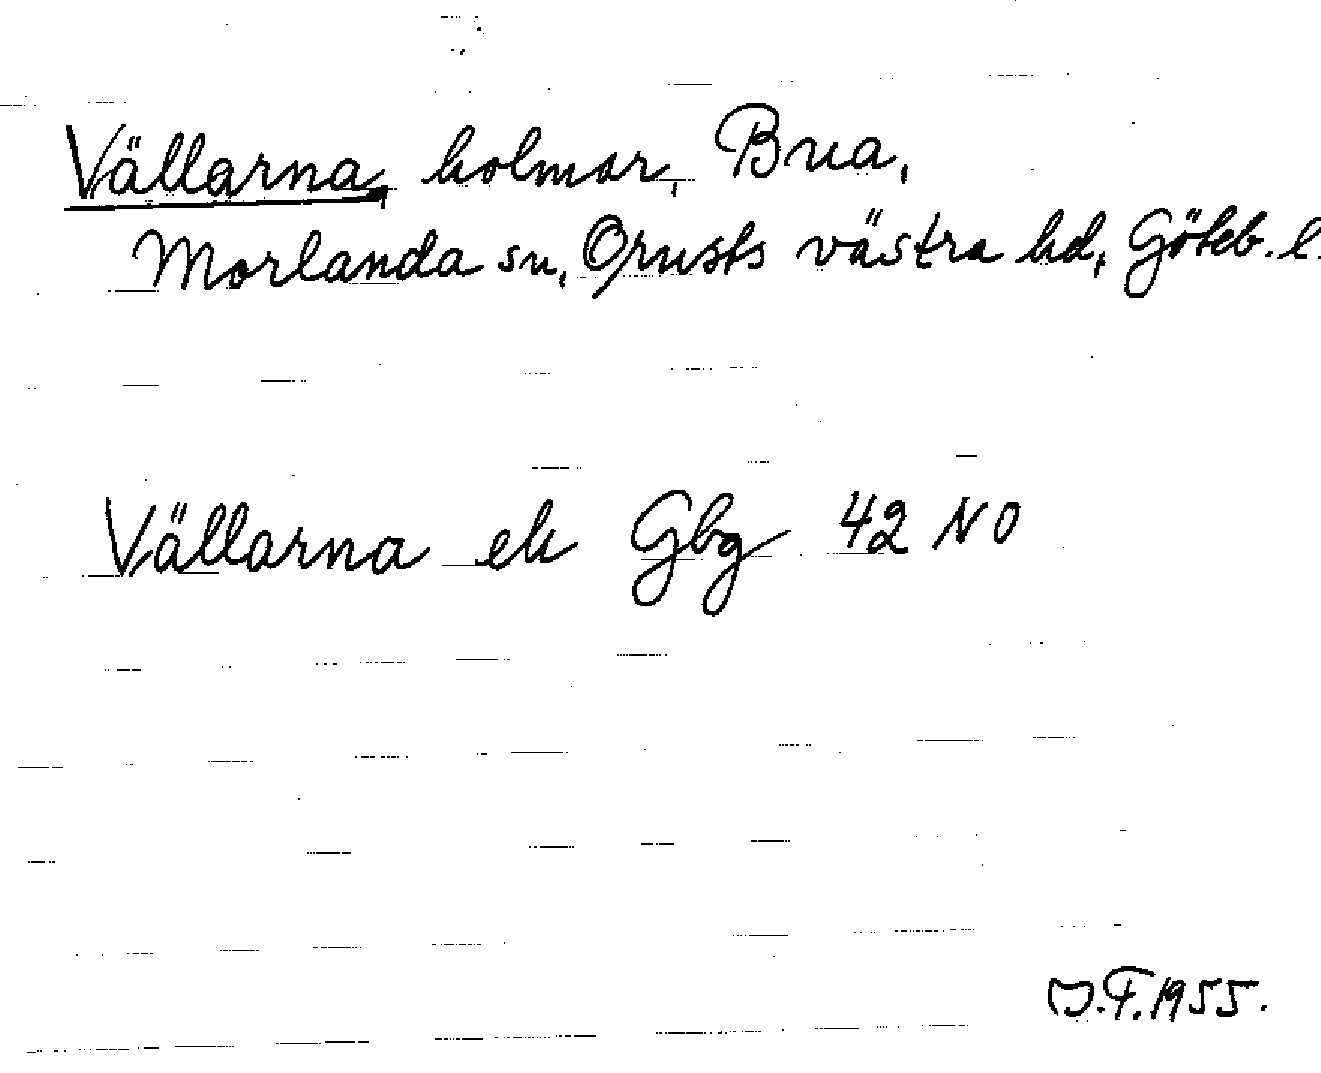 Vällarna, holmar, Brua,
Morlanda sn, Orusts västra hd, Göteb. l.
Vällarna ek Gbg 42 NO
F. 1955.